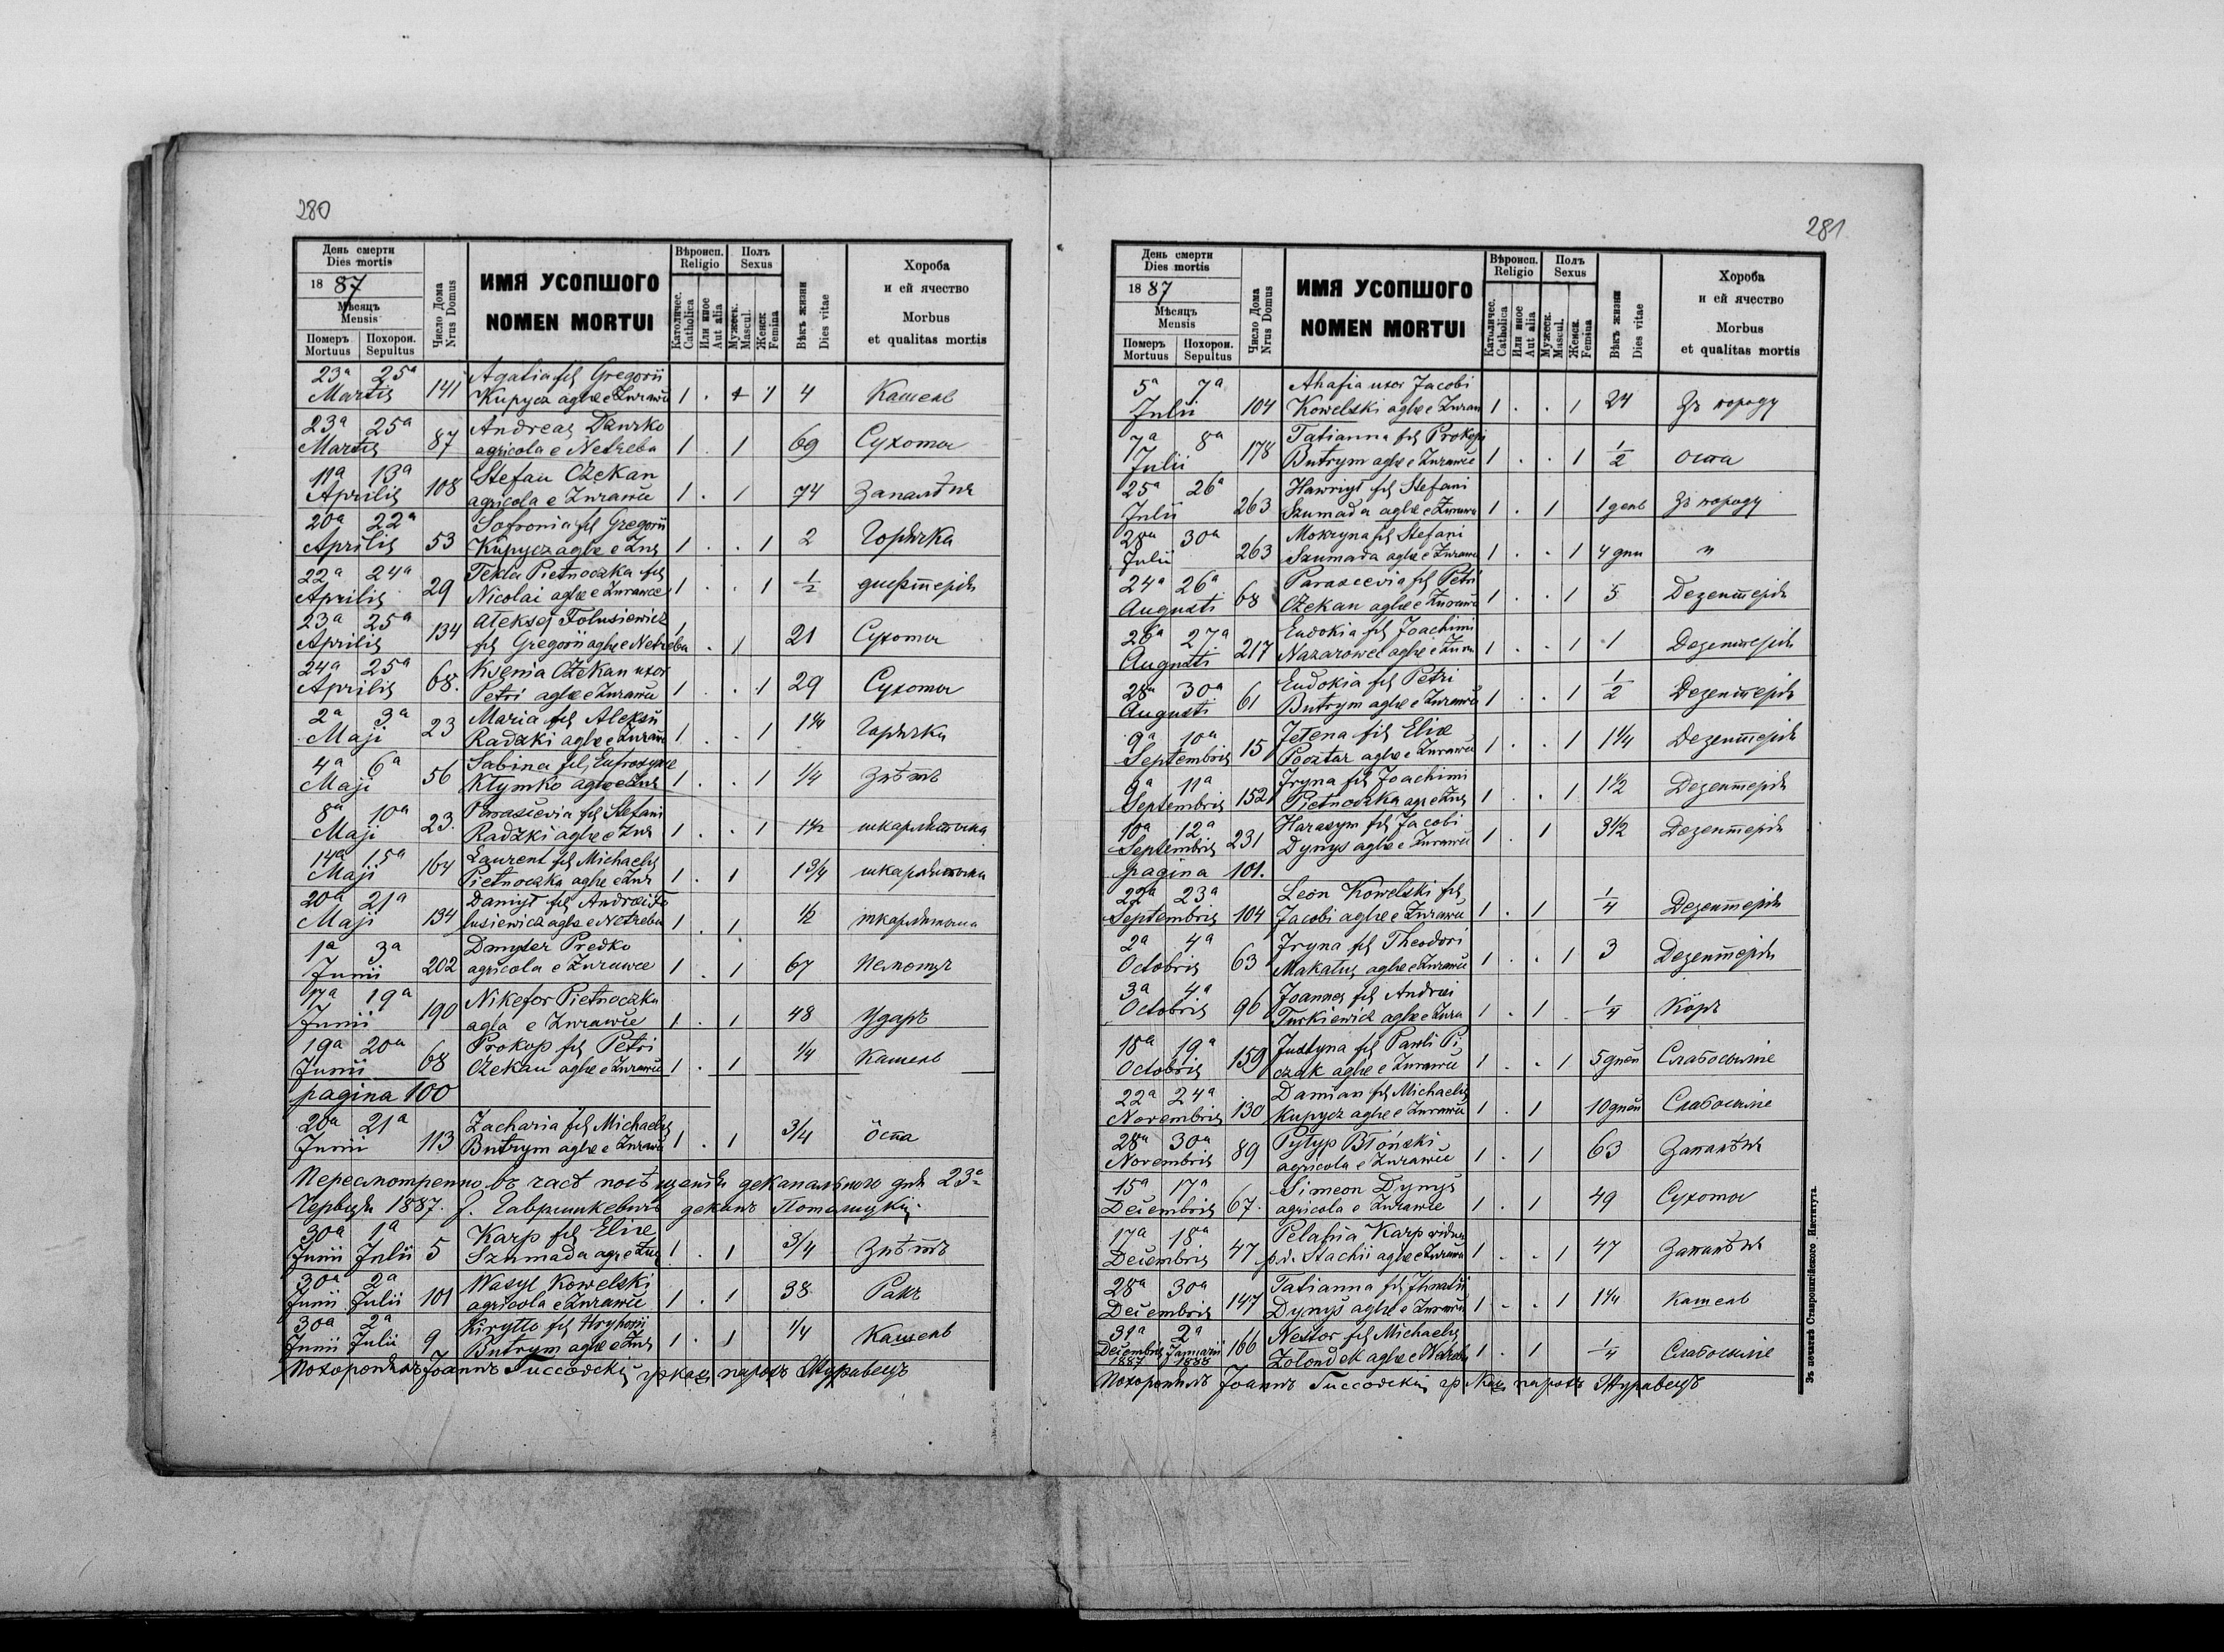 280
День смерти
Dies mortis
1887
Мѣсяцъ
Mensis
Померъ Похорон.
Mortuus Sepultus
Число Дома
Nrus Domus
ИМЯ УСОПШОГО
NOMEN MORTUI
Вѣроисп.
Religio
Католичес.
Catholica
Или иное
Aut alia
Полъ
Sexus
Мужеск.
Mascul.
Женск
Femina
Вѣкъ жизни
Dies vitae
Хороба
и ей ячество
Morbus
et qualitas mortis
23a 25a Agafia fil Gregorii
Martis 141 Kupycz aglae e Żurawce 1 . 1 4 Кашель
23a 25a Andreas
Martis 87 agricola e Netreba 1 . 1 69 Сухоты
11a 13a Stefan Czekan
Aprilis 108 agricola e Żurawce 1 . 1 74 Запалѣнє
20a 22a Sofronia fil Gregorii
Aprilis 53 Kupycz aglae e Żur 1 . . 1 2 Горячка
22a 24a Tekla Pietnoczka fil
Aprilis 29 Nicolai aglae e Żurawce 1 . . 1 1/2 дифтерія
23a 25a Aleksej Folusiewicz
Aprilis 134 fil Gregorii aglae e Netreba 1 . 1 21 Сухоты
24a 25a Ksenia Czekan uxor
Aprilis 68. Petri aglae e Żurawce 1 . . 1 29 Сухоты
2a 3a Maria fil Aleksii
Maji 23 Radzki aglae e Żurawce 1 . . 1 1 1/4 Горячка
4a 6a Sabina fil Eufrozynae
Maji 56 Kłymko aglae e Żur 1 . . 1 1/4
8a 10a Parascevia fil Stefani
Maji 23. Radzki aglae e Żur 1 . . 1 1 1/2 шкарлятина
14a 15a Laurent fil Michaelis
Maji 164 Pietnoczka aglae e Żur 1 . 1 1 3/4 шкарлятина
20a 21a Daniył fil Andreae Fo
Maji 134 lusiewicz aglae e Netreba 1 . 1 1/2 шкарлятина
1a 3a Dmyter Predko
Junii 202 agricola e Żurawce 1 . 1 67
17a 19a Nikefor Pietnoczka
Junii 190 agla e Żurawce 1 . 1 48 Ударъ
19a 20a Prokop fil Petri
Junii 68 Czekan aglae e Żurawce 1 . 1 1/4 Кашель
pagina 100
20a 21a Zacharia fil Michaelis
Junii 113 Butrym aglae e Żurawce 1 . 1 3/4 ôспа
Пересмотренно въ часѣ посѣщенія деканального дня 23a
Червця 1887. деканъ
30a 1a Karp fil Eliae
Junii Julii 5 Szumada agr e Żur 1 . 1 3/4
30a 2a Wasyl Kowelski
Junii Julii 101 agricola e Żurawce 1 . 1 38 Ракъ
30a 2a Kiryłło fil Hryhorii
Junii Julii 9 Butrym aglae e Żur 1 . 1 1/4 Кашель
Похоронилъ Іоаннъ гр кат парохъ Журавецъ
281
День смерти
Dies mortis
1887
Мѣсяцъ
Mensis
Померъ Похорон.
Mortuus Sepultus
Число Дома
Nrus Domus
ИМЯ УСОПШОГО
NOMEN MORTUI
Вѣроисп.
Religio
Католичес.
Catholica
Или иное
Aut alia
Полъ
Sexus
Мужеск.
Mascul.
Женск.
Femina
Вѣкъ жизни
Dies vitae
Хороба
и ей ячество
Morbus
et qualitas mortis
5a 7a Ahafia uxor Jacobi
Julii 104 Kowelski aglae e Żuraw 1 . . 1 24 Зъ породу
7a 8a Tatianna fil Prokopi
Julii 178 Butrym aglae e Żurawce 1 . . 1 1/2 оспа
25a 26a Hawryił fil Stefani
Julii 263 Szumada aglae e Żurawce 1 . 1 1 день Зъ породу
28a 30a Mokryna fil Stefani
Julii 263 Szumada aglae e Żurawce 1 . . 1 4 дни "
24a 26a Parascevia fil Petri
Augusti 68 Czekan aglae e Żurawce 1 . . 1 5 Дезентерія
26a 27a Eudokia fil Joachimi
Augusti 217 Nazarowec aglae e Żura 1 . . 1 1 Дезентерія
28a 30a Eudokia fil Petri
Augusti 61 Butrym aglae e Żurawce 1 . . 1 1/2 Дезентерія
9a 10a Jełena fil Eliae
Septembris 15 Pocztar aglae e Żurawce 1 . . 1 1 1/4 Дезентерія
9a 11a Iryna fil Joachimi
Septembris 152 Pietnoczka agr e Żur 1 . . 1 1 1/2 Дезентерія
10a 12a Harasym fil Jacobi
Septembris 231 Dynys aglae e Żurawce 1 . 1 3 1/2 Дезентерія
pagina 101.
22a 23a Leon Kowelski fil
Septembris 104 Jacobi aglae e Żurawce 1 . 1 1/4 Дезентерія
2a 4a Iryna fil Theodori
Octobris 63 Makałus aglae e Żurawce 1 . . 1 3 Дезентерія
3a 4a Joannes fil Andreae
Octobris 96 Turkiewicz aglae e Żura 1 . 1 1/4 Кôръ
18a 19a Justyna fil Pawli Pi
Octobris 159 czak aglae e Żurawce 1 . . 1 5 днôй Слабосильє
22a 24a Damian fil Michaelis
Novembris 130 Kupycz aglae e Żurawce 1 . 1 10 днôй Слабосильє
28a 30a Pyłyp Błoński
Novembris 89 agricola e Żurawce 1 . 1 63 Запалѣнє
15a 17a Simeon Dynys
Decembris 67. agricola e Żurawce 1 . 1 49 Сухоты
17a 18a Pelahia Karp vidua
Decembris 47 p.d. Stachii aglae e Żurawce 1 . . 1 47 Запалѣнє
28a 30a Tatianna fil Ihnatii
Decembris 147 Dynys aglae e Żurawce 1 . . 1 1 1/4 Кашель
31a 2a Nestor fil Michaelis
Decembris Januarii 166 Żołondek aglae e Netreba 1 . 1 1/4 Слабосильє
1887 1888
Похоронилъ Іоаннъ гр Кат парохъ Журавецъ
Зъ печатнѣ Ставропигійского Института.